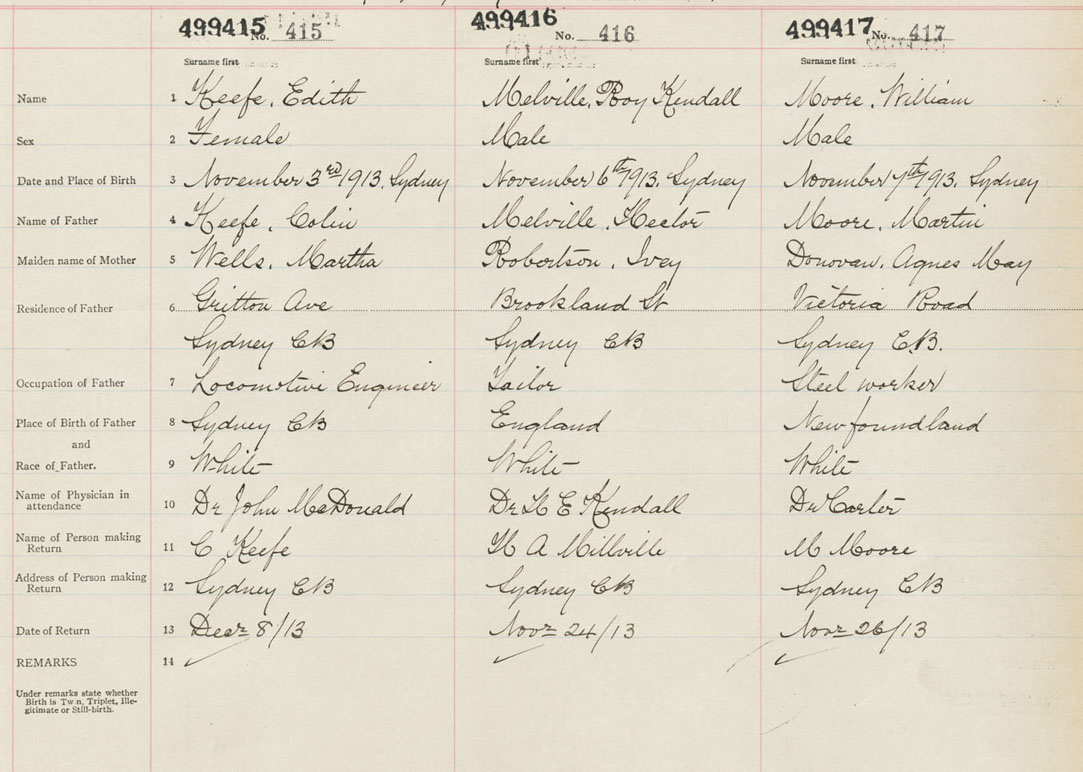 499415 No. 415 499416 No. 416 499417 No. 417
Surname first Surname first Surname first
Name 1 Keefe, Edith Melville, Roy Kendall Moore, William
Sex 2 Female Male Male
Date and Place of Birth 3 November 3rd 1913, Sydney November 6th 1913, Sydney November 7th 1913, Sydney
Name of Father 4 Keefe, Colin Melville, Hector Moore, Martin
Maiden name of Mother 5 Wells, Martha Robertson, Ivey Donovan, Agnes May
Residence of Father 6 Gritton Ave Brookland St Victoria Road
Sydney CB Sydney CB Sydney C.B.
Occupation of Father 7 Locomotive Engineer Tailor Steel worker
Place of Birth of Father 8 Sydney CB England Newfoundland
and
Race of Father. 9 White White White
Name of Physician in
attendance 10 Dr John McDonald Dr H E Kendall Dr Carter
Name of Person making
Return 11 C Keefe H A Millville M Moore
Address of Person making
Return 12 Sydney CB Sydney CB Sydney CB
Date of Return 13 Decr 8/13 Novr 24/13 Novr 26/13
REMARKS 14
Under remarks state whether
Birth is Twin, Triplet, Ille-
gitimate or Still-birth.